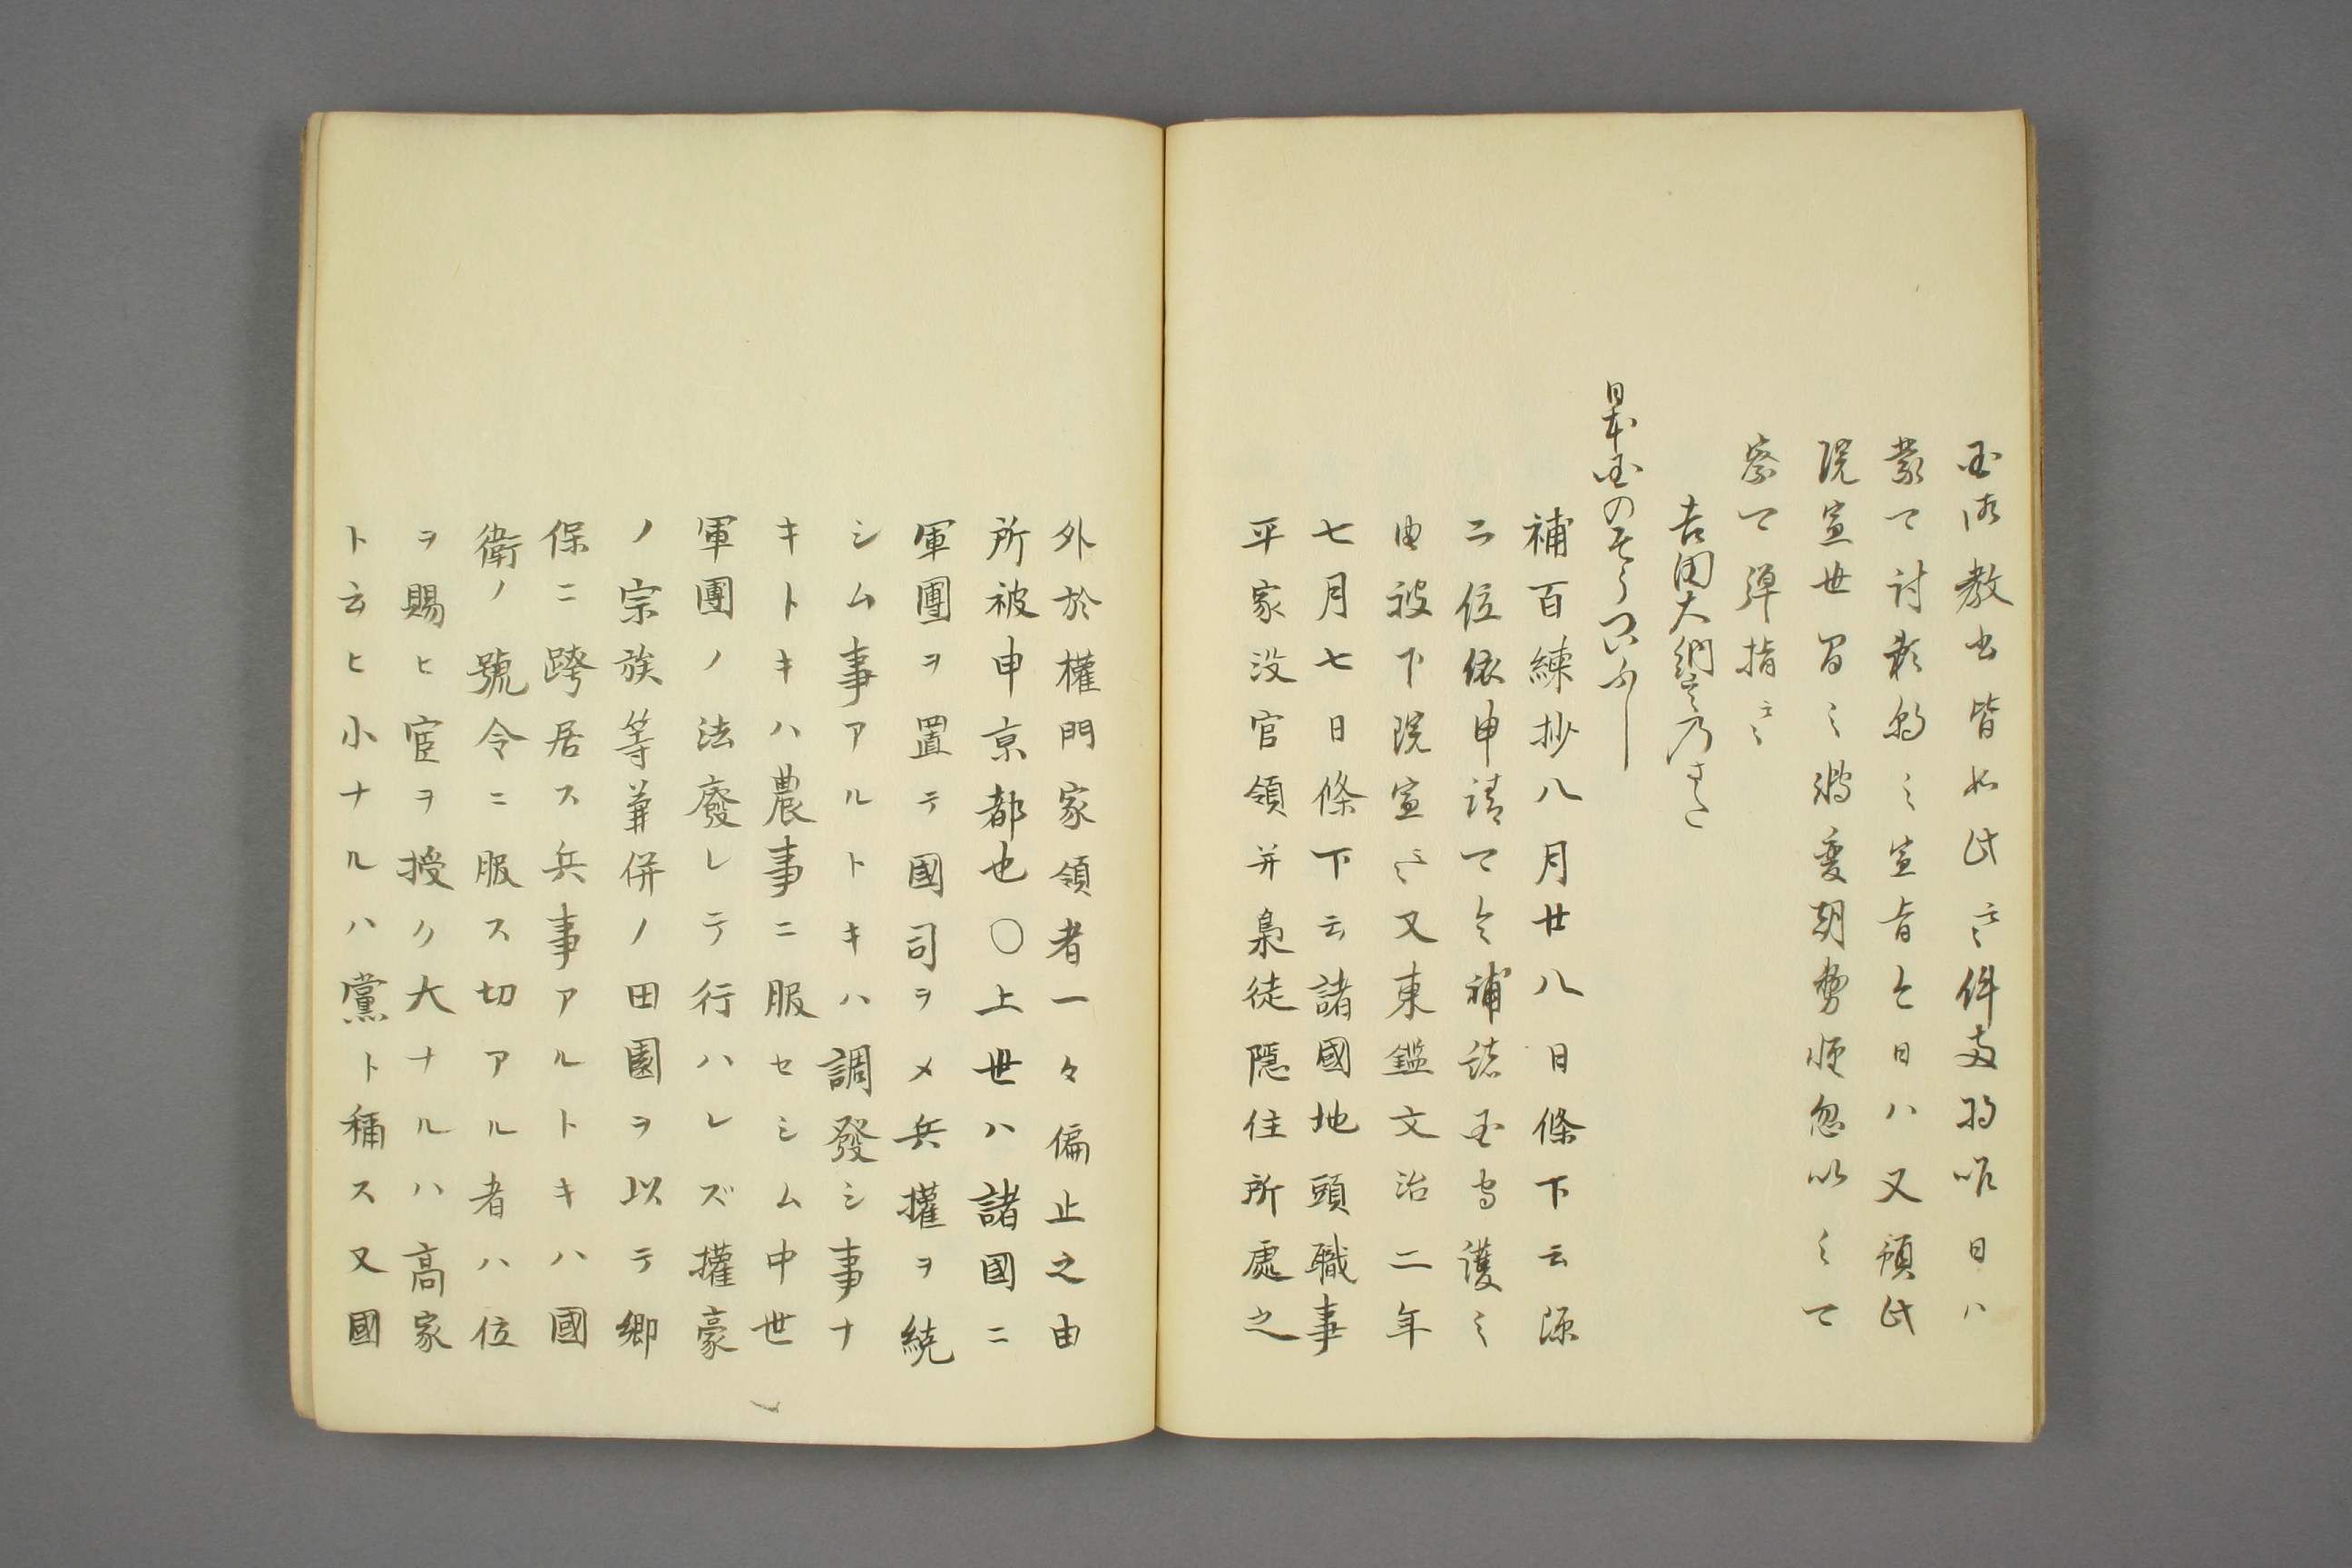 国院教書皆如此云々件両将昨日ハ
蒙可討頼朝之宣旨今日ハ又預此
院宣世間之転変朝勢軽忽以之可
察可弾指云々
吉田大納言乃
日本国のそうついふし
補百練抄八月廿八日條下云源
二位依申請可令補諸国守護之
由被下院宣云々又東鑑文治二年
七月七日條下云諸國地頭職事
平家没官領并梟徒隠住所處之
外於權門家領者一々偏止之由
所被申京都也〇上世ハ諸國ニ
軍團ヲ置テ國司ヲメ兵權ヲ統
シム事アルトキハ調發シ事ナ
キトキハ農事ニ服セシム中世
軍團ノ法廢レテ行ハレズ權豪
ノ宗族等兼併ノ田園ヲ以テ郷
保ニ跨居ス兵事アルトキハ國
衛ノ號令ニ服ス切アル者ハ位
ヲ賜ヒ官ヲ授ク大ナルハ高家
ト云ヒ小ナルハ黨ト稱ス又國